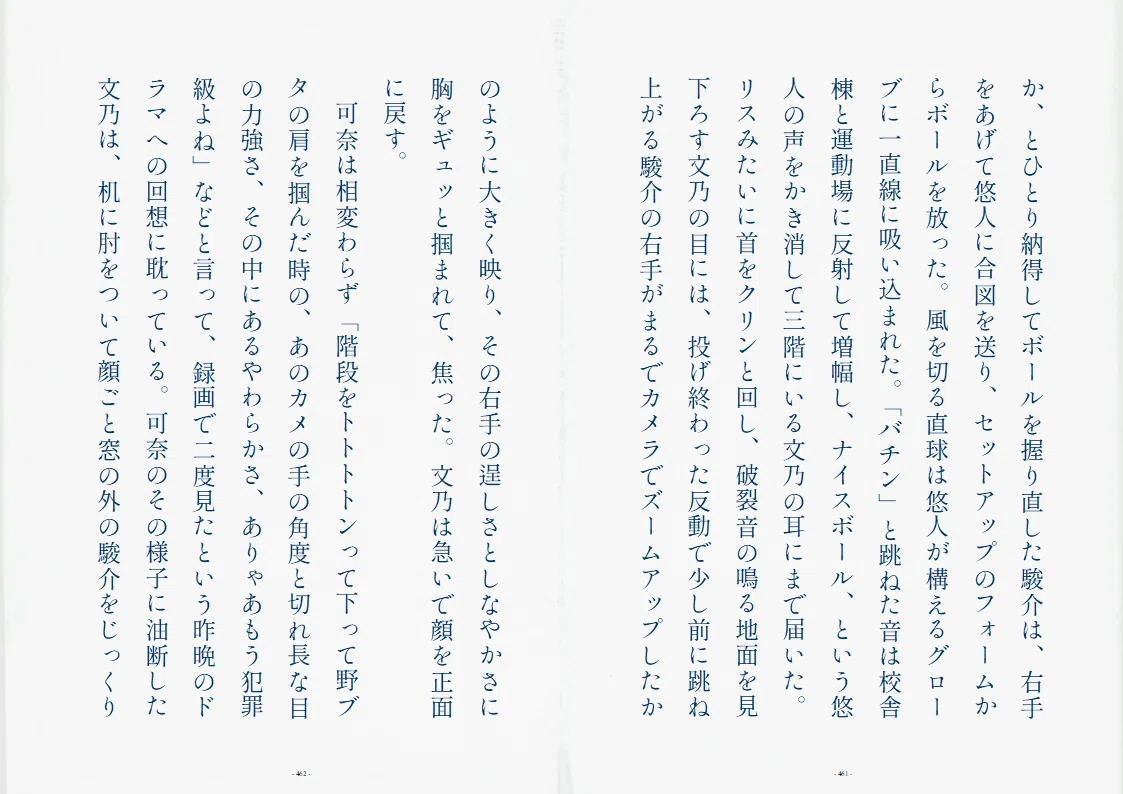 か、とひとり納得してボールを握り直した駿介は、右手
をあげて悠人に合図を送り、セットアップのフォームか
らボールを放った。風を切る直球は悠人が構えるグロー
ブに一直線に吸い込まれた。「バチン」と跳ねた音は校舎
棟と運動場に反射して増幅し、ナイスボール、という悠
人の声をかき消して三階にいる文乃の耳にまで届いた。
リスみたいに首をクリンと回し、破裂音の鳴る地面を見
下ろす文乃の目には、投げ終わった反動で少し前に跳ね
上がる駿介の右手がまるでカメラでズームアップしたか
- 461 -
のように大きく映り、その右手の逞しさとしなやかさに
胸をギュッと掴まれて、焦った。文乃は急いで顔を正面
に戻す。
可奈は相変わらず「階段をトトトトンって下って野ブ
タの肩を掴んだ時の、あのカメの手の角度と切れ長な目
の力強さ、その中にあるやわらかさ、ありゃあもう犯罪
級よね」などと言って、録画で二度見たという昨晩のド
ラマへの回想に耽っている。可奈のその様子に油断した
文乃は、机に肘をついて顔ごと窓の外の駿介をじっくり
- 462 -